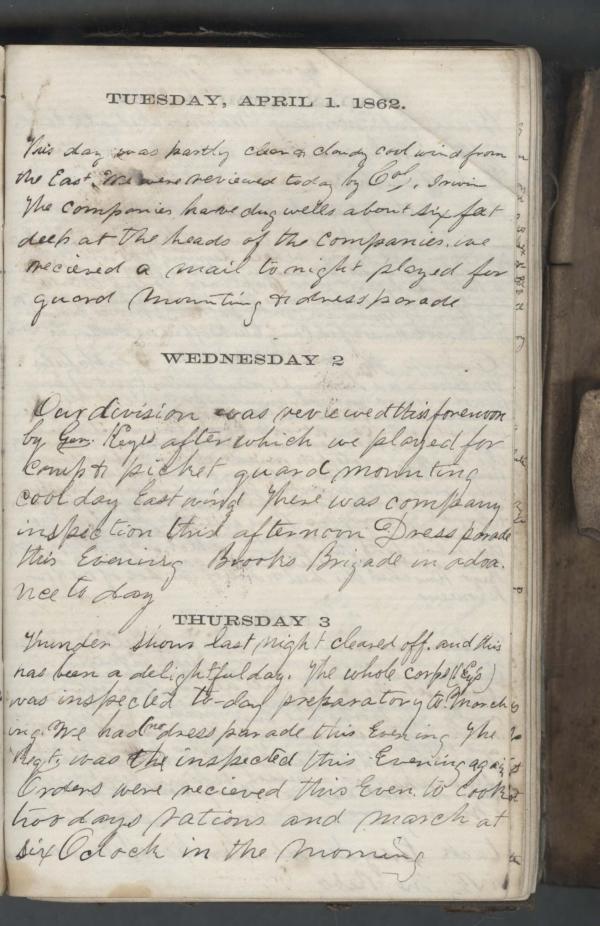 TUESDAY, APRIL 1. 1862.
This day was partly clear & cloudy cool wind from
the East. We were reviewed today by Col. Irwin
The companies have dug wells about six feet
deep at the heads of the companies. we
recieved a mail to night played for
guard mounting & dress parade
WEDNESDAY 2
Our division was reviewed this forenoon
by Gen. Keyes after which we played for
camp & picket guard mounting
cool day East wind There was company
inspection this afternoon Dress parade
this Evening Brooks Brigade in adva-
nce to day
THURSDAY 3
Thunder shower last night cleared off. and this
has been a delightful day. The whole corps
was inspected to-day preparatory to March
ing. We had no dress parade this Evening The
Regt. was the inspected this Evening again
Orders were recieved this Even. to cook
two days rations and march at
six Oclock in the morning